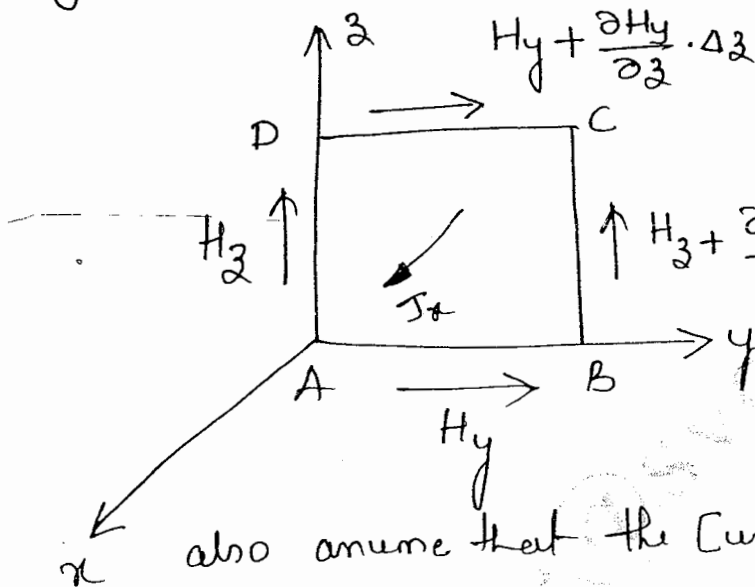 z
Hy + ∂Hy/∂z · Δz
D
C
Hz
Hz + ∂
Jx
y
A
B
Hy
x
also assume that the Cu